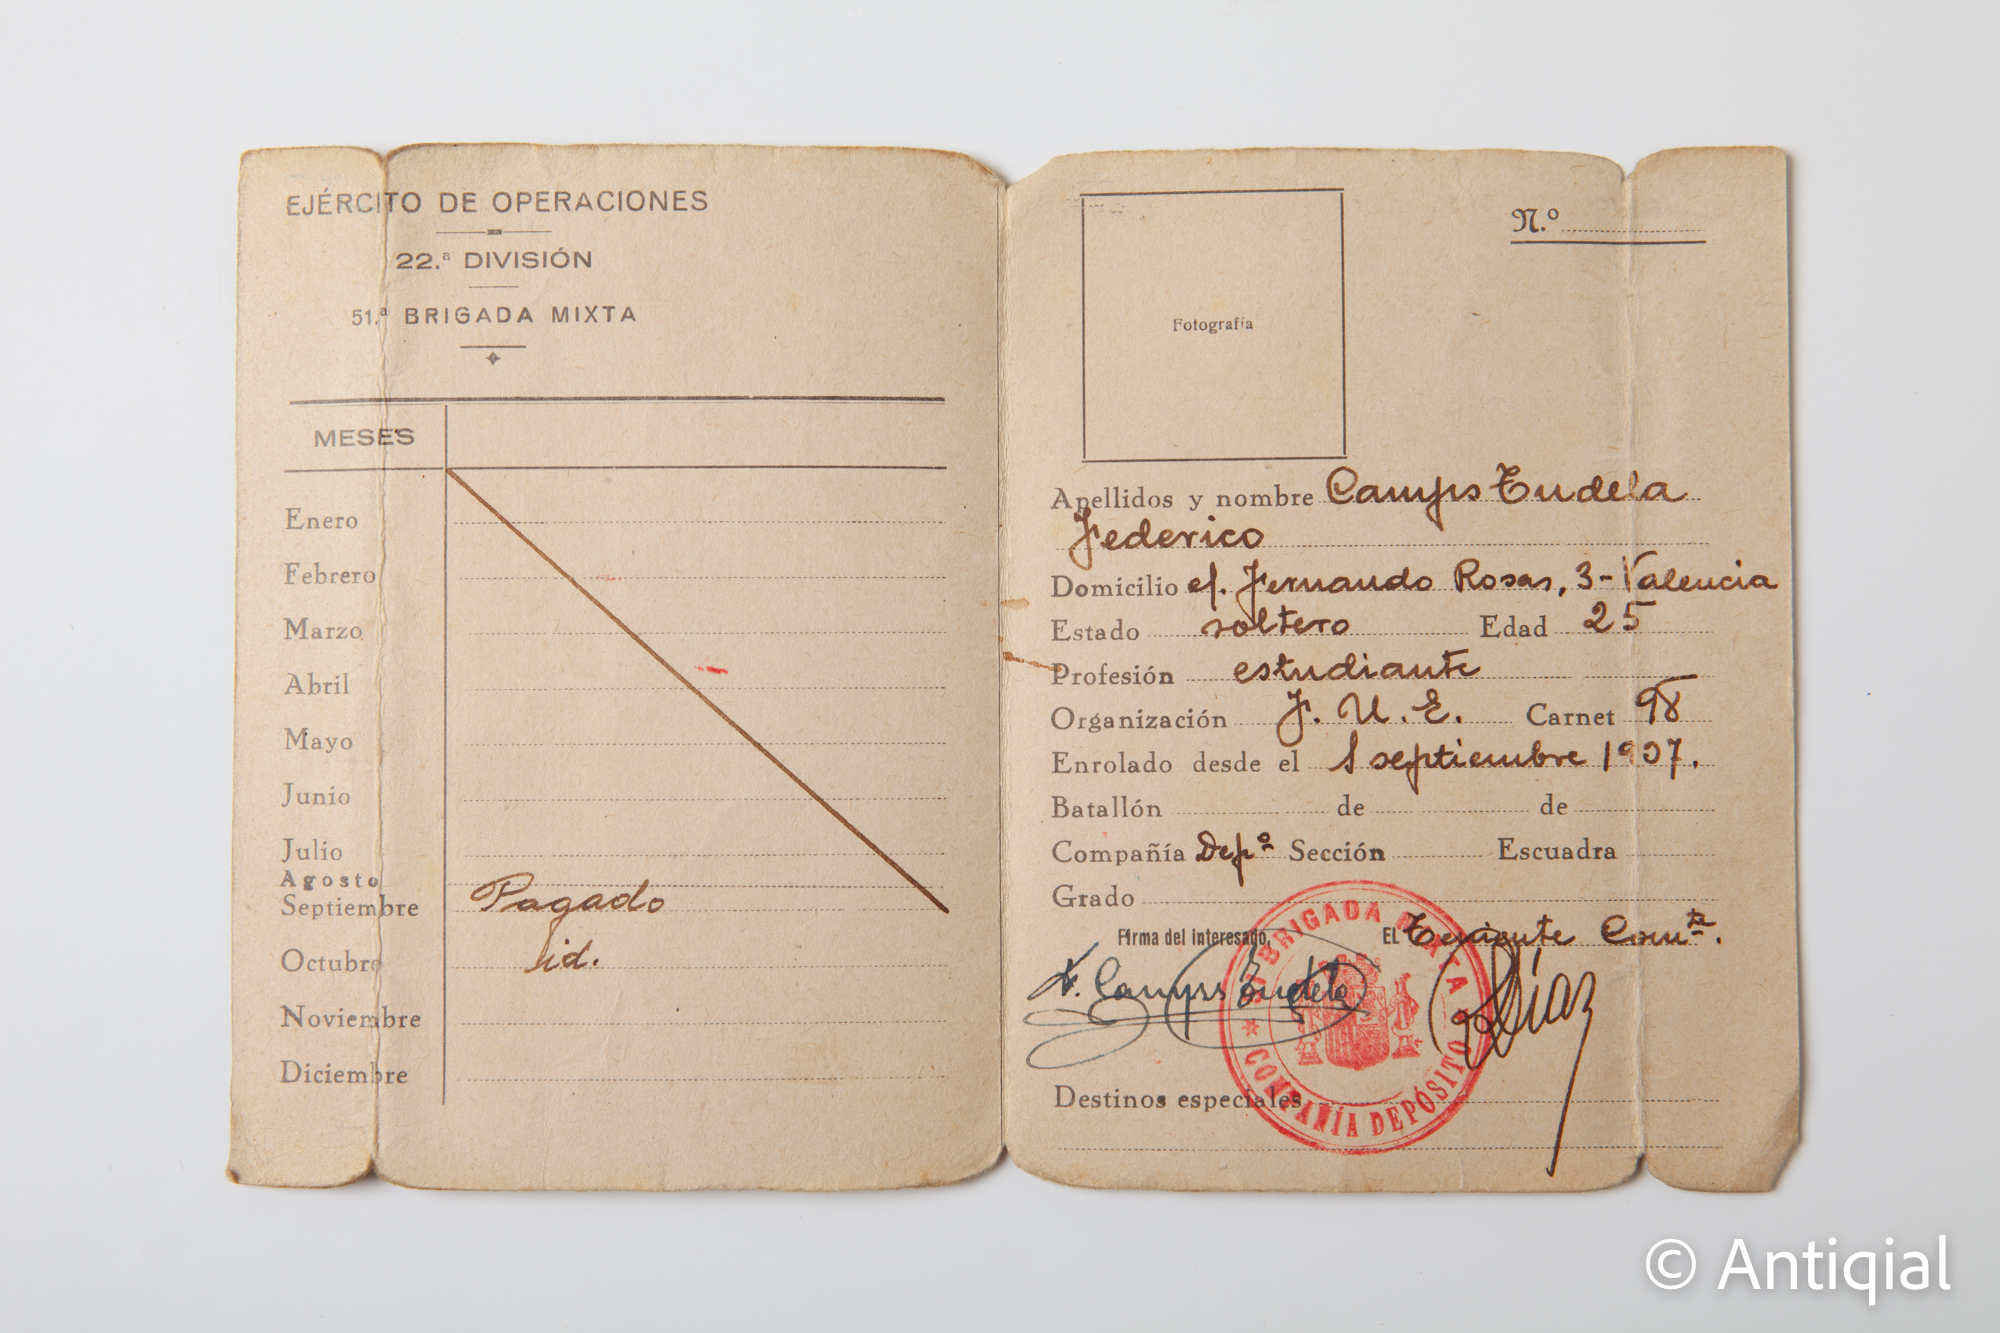 EJÉRCITO DE OPERACIONES
22.ª DIVISIÓN
51.ª BRIGADA MIXTA
MESES
Enero
Febrero
Marzo
Abril
Mayo
Junio
Julio
Agosto
Septiembre Pagado
Octubre id.
Noviembre
Diciembre
N.º
Fotografía
Apellidos y nombre Camps Tudela
Federico
Domicilio c/. Fernando Rosas, 3 - Valencia
Estado soltero Edad 25
Profesión estudiante
Organización F. U. E. Carnet 98
Enrolado desde el 1 septiembre 1937.
Batallón de de
Compañía Depº Sección Escuadra
Grado
Firma del interesado, EL Teniente Comte.
F. Camps Tudela Díaz
51 BRIGADA MIXTA
* COMPAÑÍA DEPÓSITO
Destinos especiales
© Antiqial